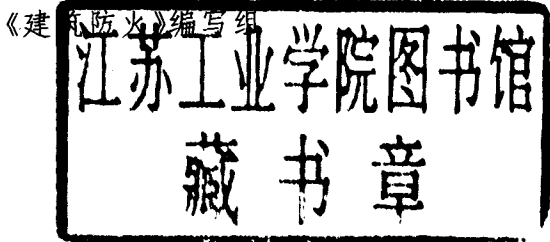 《建筑防火》编写组
江苏工业学院图书馆
藏书章